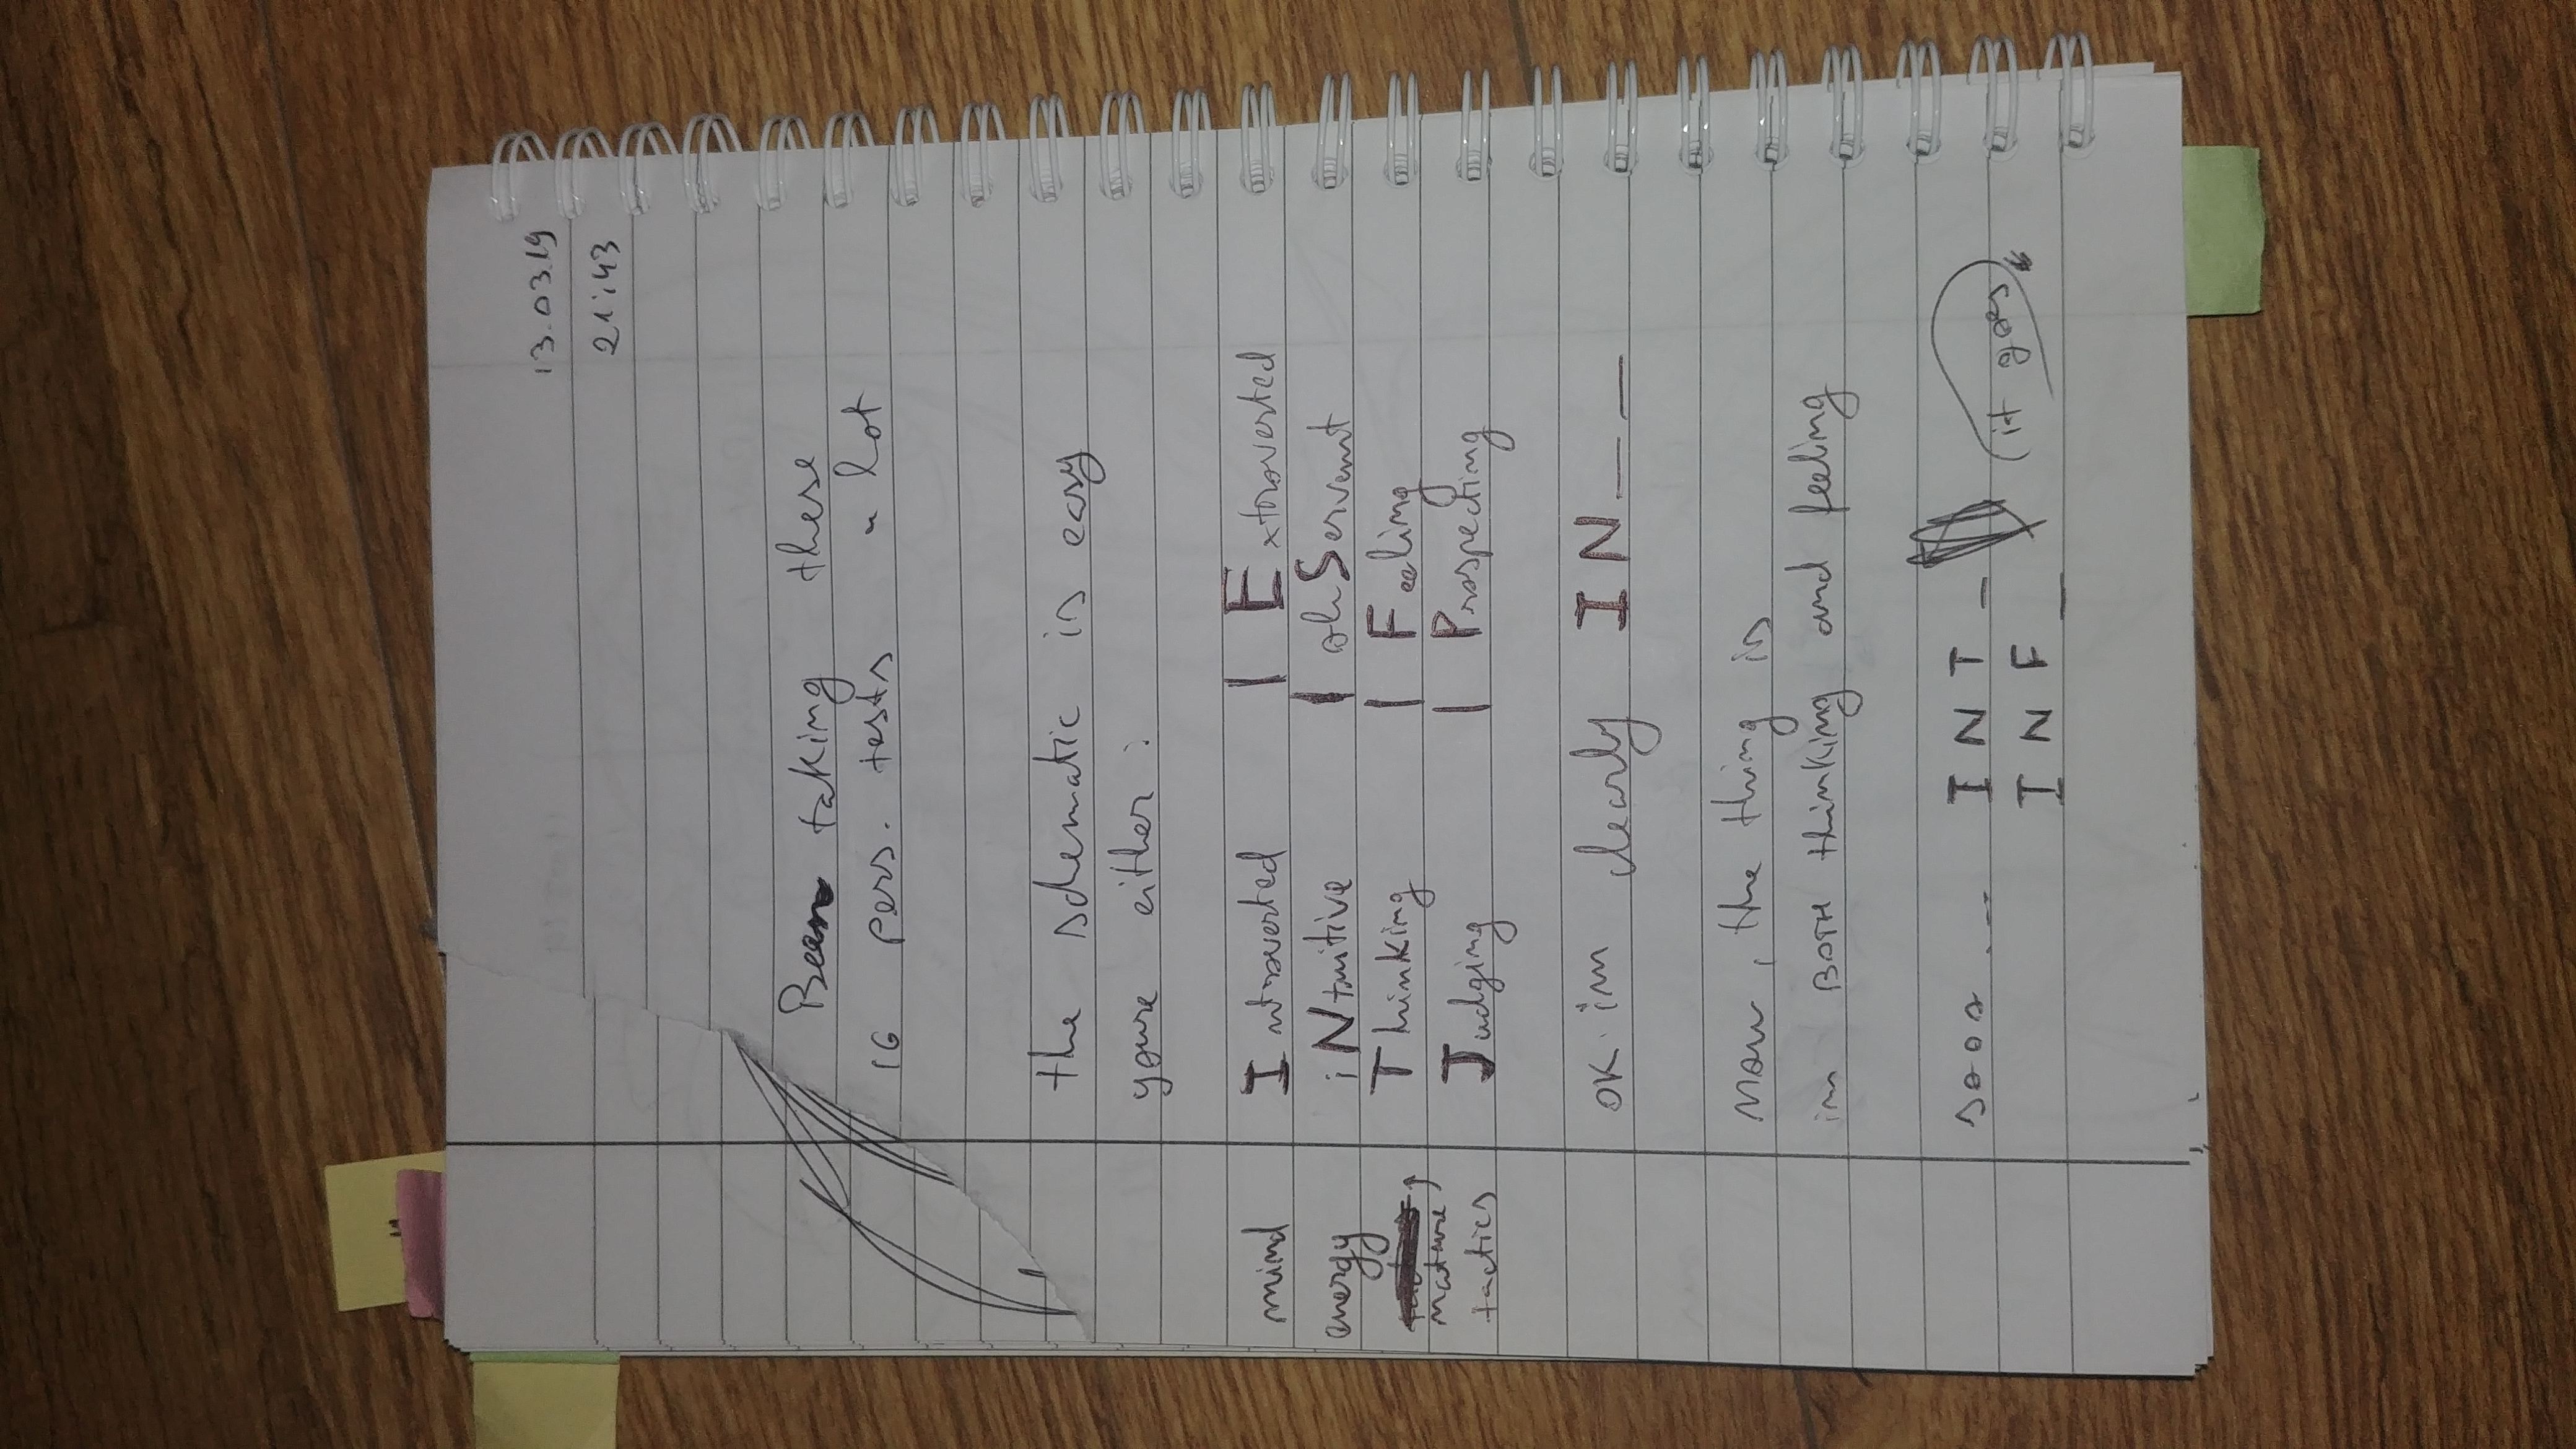 13.03.19
21:43
Been taking these
16 pers. tests a lot
the schematic is easy
youre either:
mind Introverted | Extroverted
energy iNtuitive | obServant
nature Thinking | Feeling
tactics Judging | Prospecting
OK im clearly IN_ _
now, the thing is
im BOTH thinking and feeling
sooo... INT_ it goes
INF_